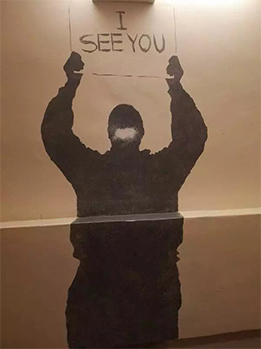 I
SEE YOU